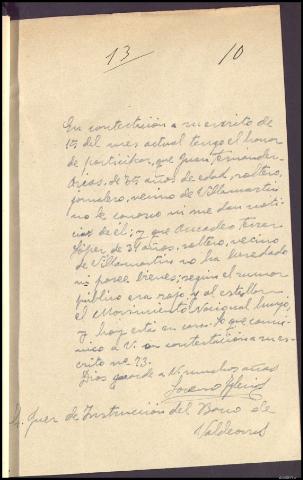 13 10
En contestación a su escrito de
15 del mes actual tengo el honor
de participar, que Juan Fernandez
Arias, de 35 años de edad, soltero,
jornalero, vecino de Villamartin
no le conozco ni me dan noti
cias de él; y que Amadeo Ferrer
López de 39 años, soltero, vecino
de Villamartin no ha heredado
ni posee bienes; según el rumor
público era rojo, y al estallar
el Movimiento Nacional huyó,
y hoy está en casa. Lo que comu
nico a V. en contestación a su es
crito nº 73.
Dios guarde a V. muchos años
Iglesias
Sr. Juez de Instrucción del Barco de
Valdeorras